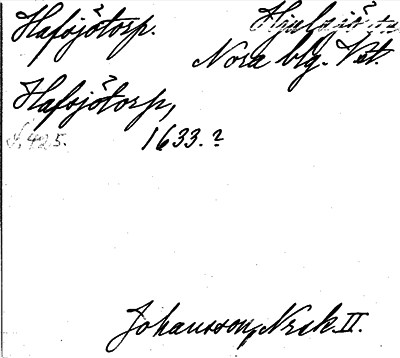 Hafsjötorp. Hjulsjö sn
Nora blg. Vstl.
Hafsjötorp,
s. 425. 1633.?
Johansson, Norask II.